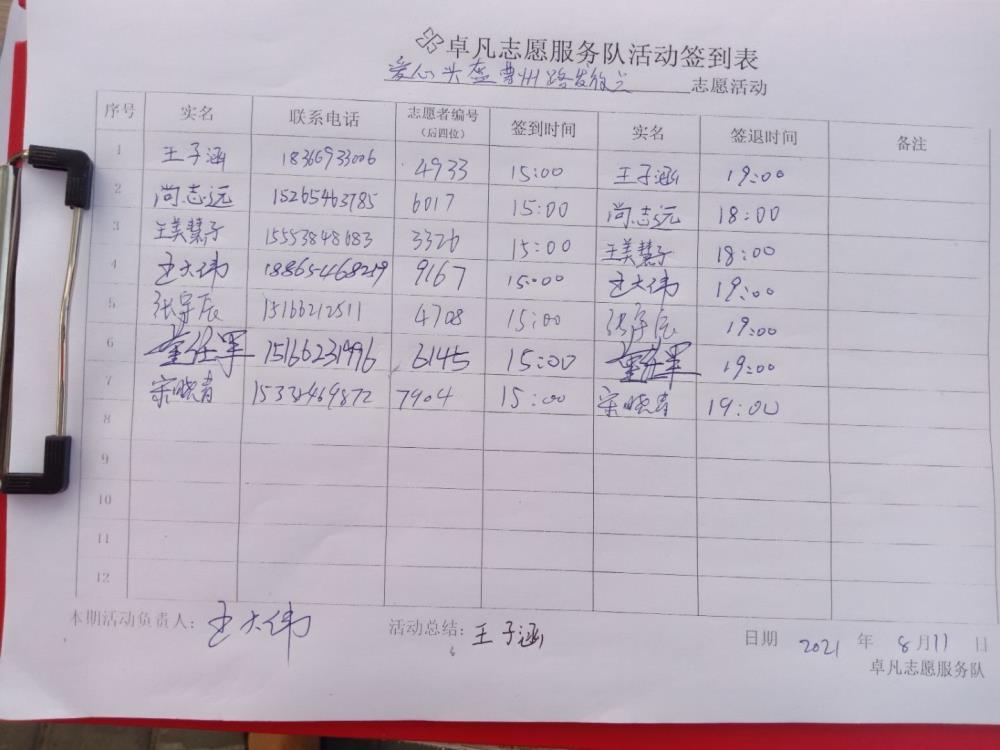 卓凡志愿服务队活动签到表
爱心头盔曹州路发放点 志愿活动
序号 实名 联系电话 志愿者编号（后四位） 签到时间 实名 签退时间 备注
1 王子涵 18366933006 4933 15:00 王子涵 19:00
2 尚志远 15265463785 6017 15:00 尚志远 18:00
3 王美慧子 15553848683 3326 15:00 王美慧子 18:00
4 王大伟 18865468219 9167 15:00 王大伟 19:00
5 张宇辰 15166212511 4708 15:00 张宇辰 19:00
6 董任军 15166231996 6145 15:00 董任军 19:00
7 宋晓青 7904 15:00 宋晓青 19:00
8
9
10
11
12
本期活动负责人：王大伟 活动总结：王子涵 日期 2021 年 8月11 日
卓凡志愿服务队